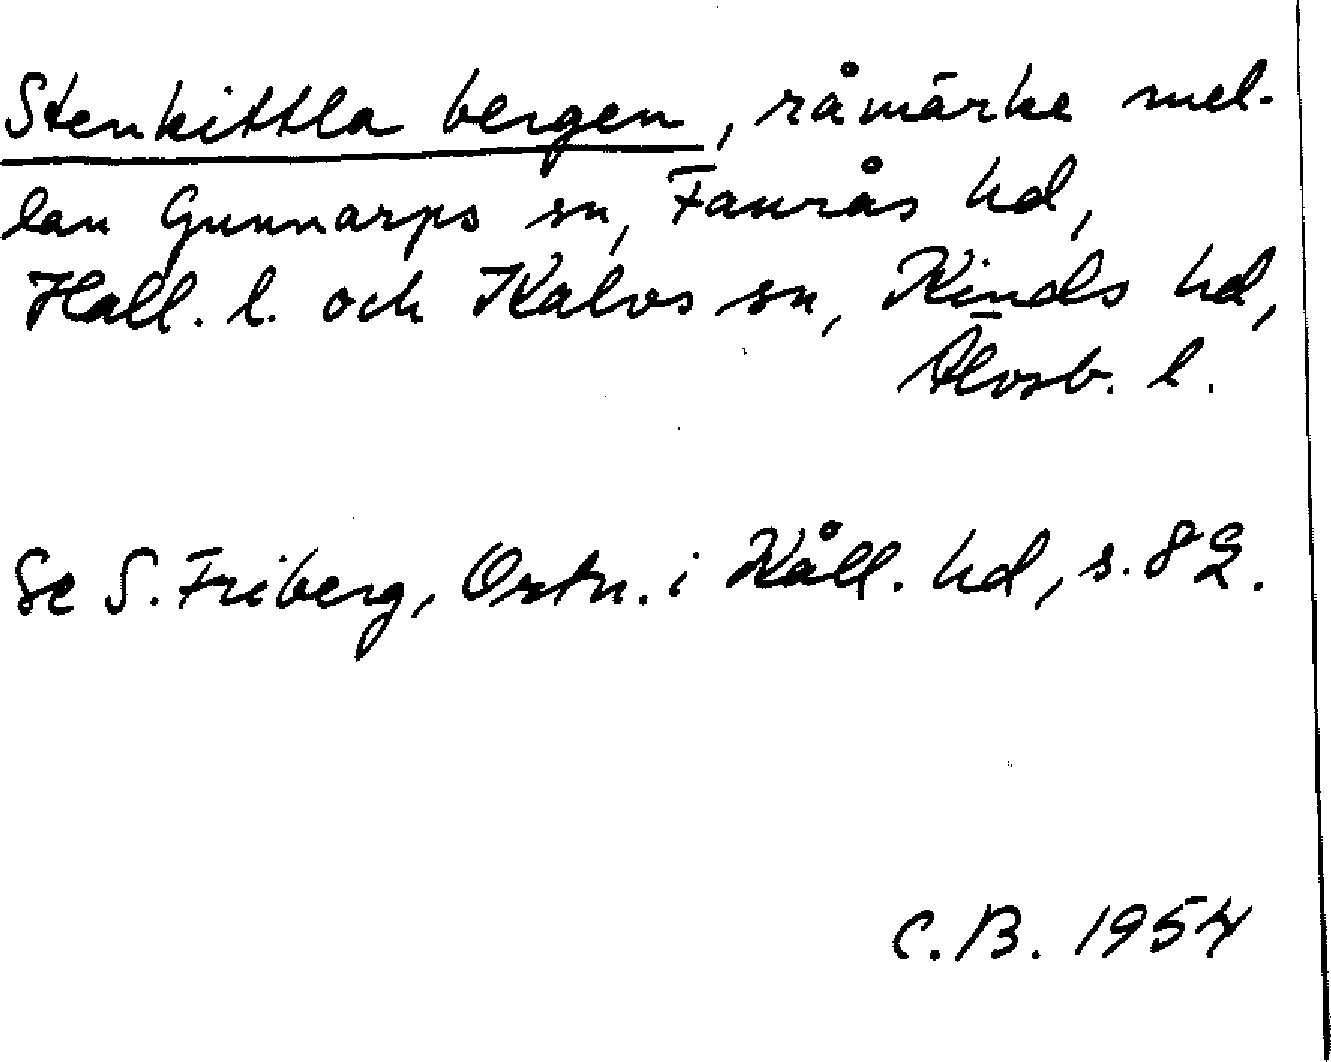 Stenkittla bergen, råmärke mel-
lan Gunnarps sn, Faurås hd,
Hall. l. och Kalvs sn, Kinds hd,
Älvsb. l.
Se S. Friberg, Ortn. i Kåll. hd, s. 82.
C.B. 1954